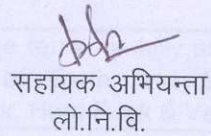 सहायक अभियन्ता
लो.नि.वि.